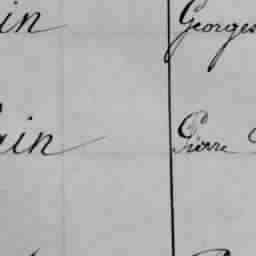 in Georges
ain Pierre